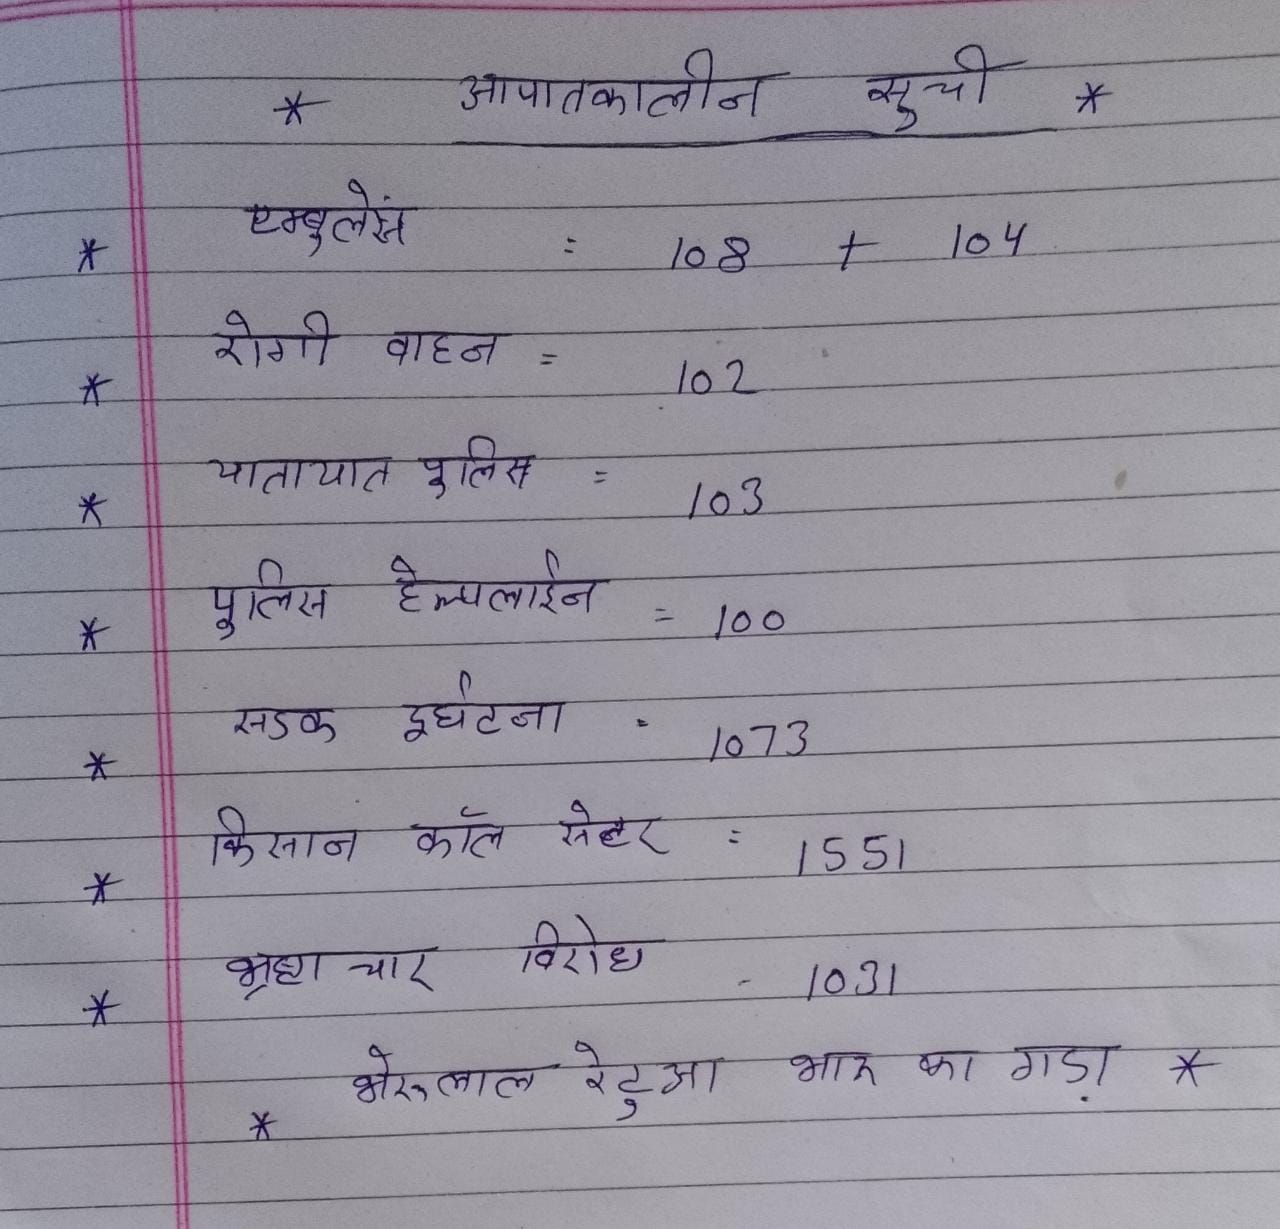 * आपातकालीन सुची *
* एम्बुलेंस = 108 + 104
* रोगी वाहन = 102
* यातायात पुलिस = 103
* पुलिस हेल्पलाईन = 100
* सडक दुर्घटना = 1073
* किसान कॉल सेन्टर = 1551
* भ्रष्टाचार विरोध - 1031
* भेरूलाल रेटुआ भारू का गडा़ *